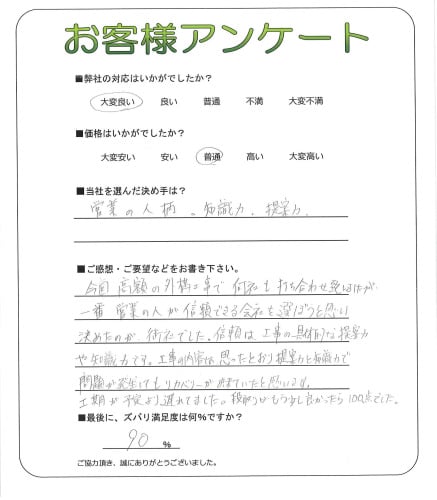 お客様アンケート
■弊社の対応はいかがでしたか？
大変良い 良い 普通 不満 大変不満
■価格はいかがでしたか？
大変安い 安い 普通 高い 大変高い
■当社を選んだ決め手は？
営業の人柄、知識力、提案力
■ご感想・ご要望などをお書き下さい。
今回高額の外構工事で何社も打ち合わせ
一番営業の人が信頼できる会社を選ぼうと思い
決めたのが御社でした。信頼は工事の具体的な提案力
や知識力です。工事の内容は思ったとおり提案力と知識力で
問題が発生してもリカバリーが出来ていたと思います。
工期が予定より遅れてました。段取りがもう少し良かったら100点でした。
■最後に、ズバリ満足度は何%ですか？
90 %
ご協力頂き、誠にありがとうございました。